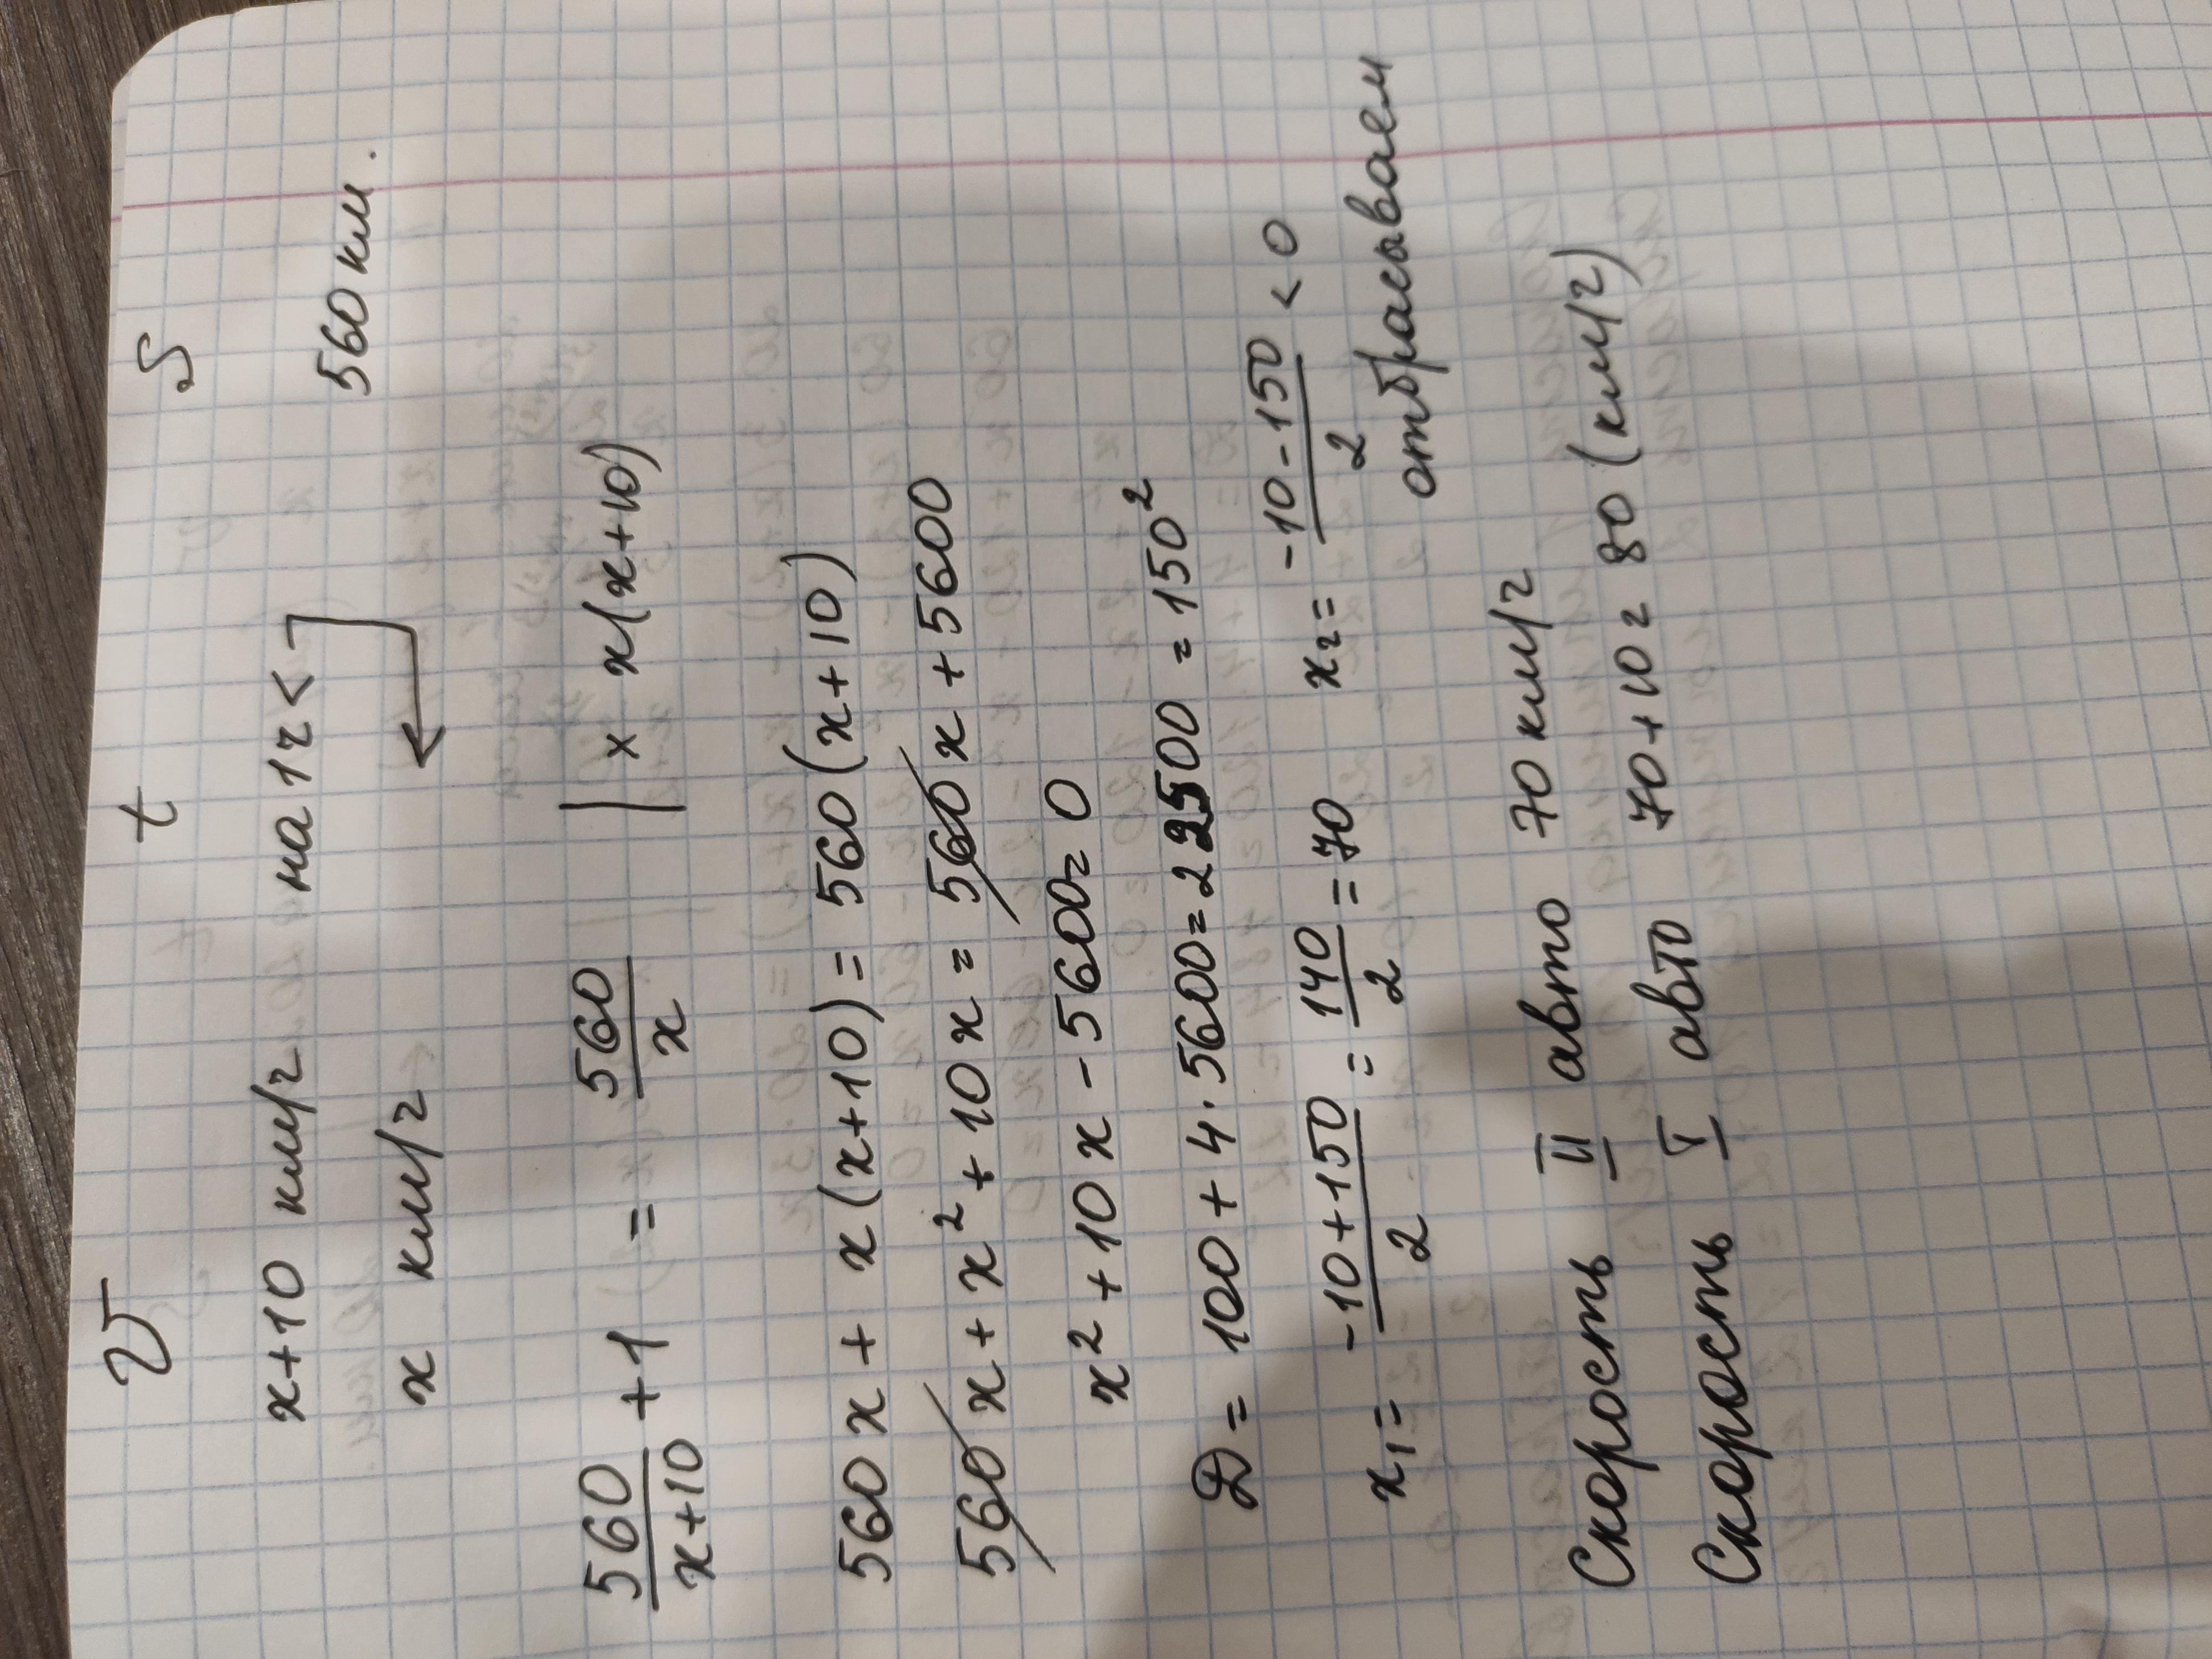 V t S
x+10 км/ч на 1ч < 560 км.
x км/ч
560/x+10 + 1 = 560/x | × x(x+10)
560x + x(x+10) = 560(x+10)
560x + x² + 10x = 560x + 5600
x² + 10x - 5600 = 0
Д = 100 + 4·5600 = 22500 = 150²
x₁ = -10+150/2 = 140/2 = 70 x₂ = -10-150/2 < 0
отбрасываем
Скорость II авто 70 км/ч
Скорость I авто 70+10 = 80 (км/ч)